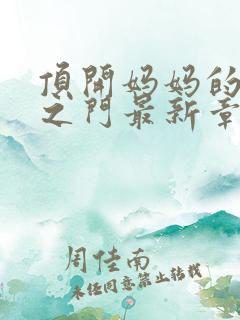 頂開妈妈的
之门最新章
周佳南
未经同意禁止转载